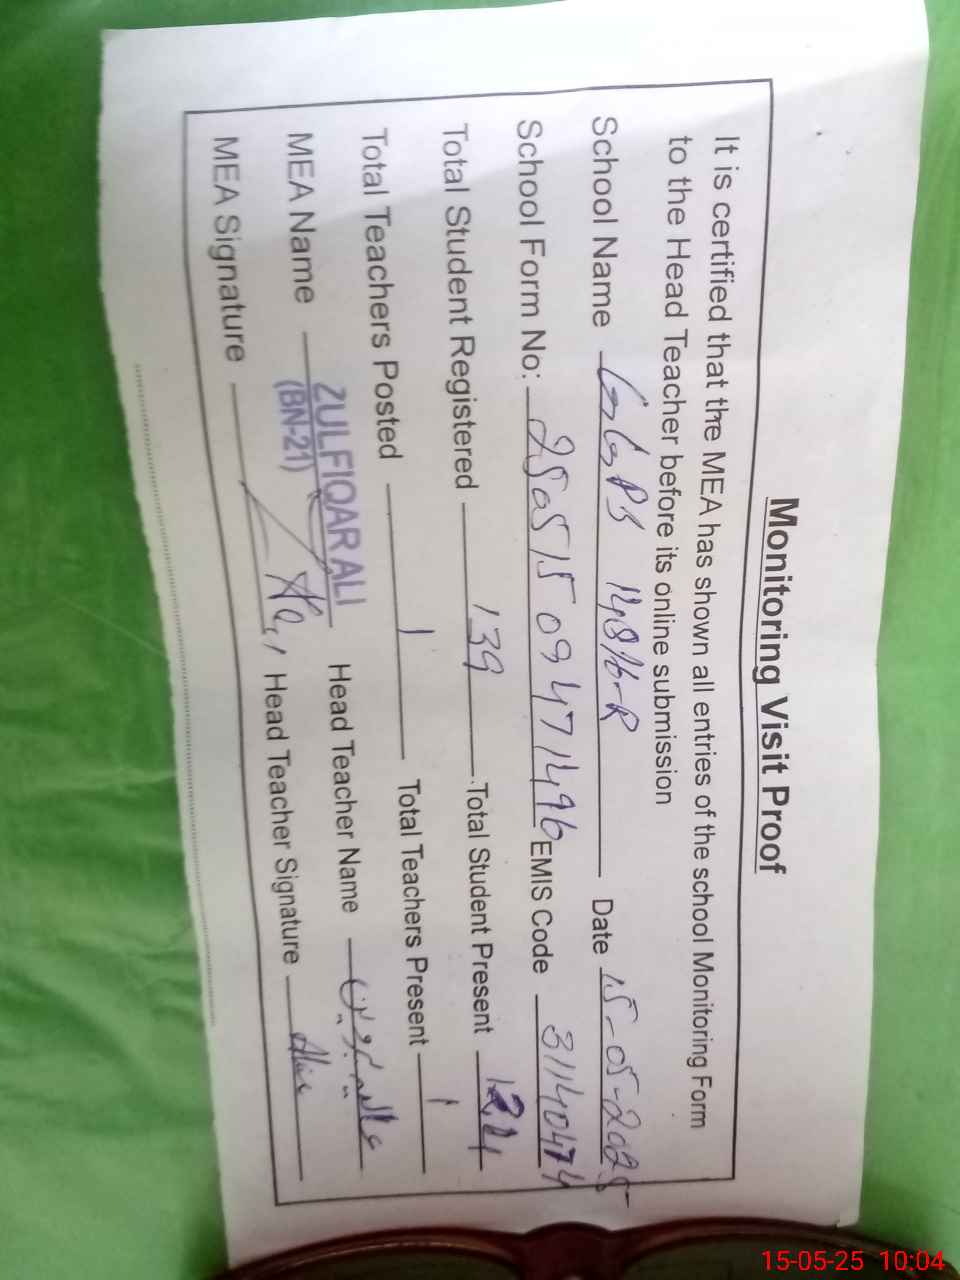 Monitoring Visit Proof
It is certified that the MEA has shown all entries of the school Monitoring Form
to the Head Teacher before its online submission
School Name GGPS 148/6-R Date 15-05-2025
School Form No: 25051509471496 EMIS Code 31140474
Total Student Registered 139 Total Student Present
Total Teachers Posted 1 Total Teachers Present 1
MEA Name ZULFIQAR ALI Head Teacher Name عالیہ پروین
(BN-21)
MEA Signature Head Teacher Signature
15-05-25 10:04